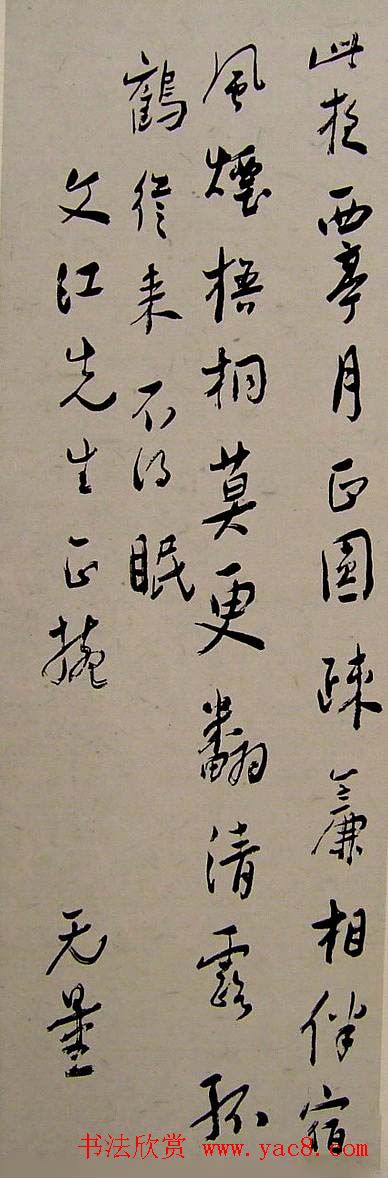 此夜西亭月正圆疎帘相伴宿
风烟梧桐莫更翻清露孤
鹤従来不得眠
文江先生正捥
无量
书法欣赏 www.yac8.com